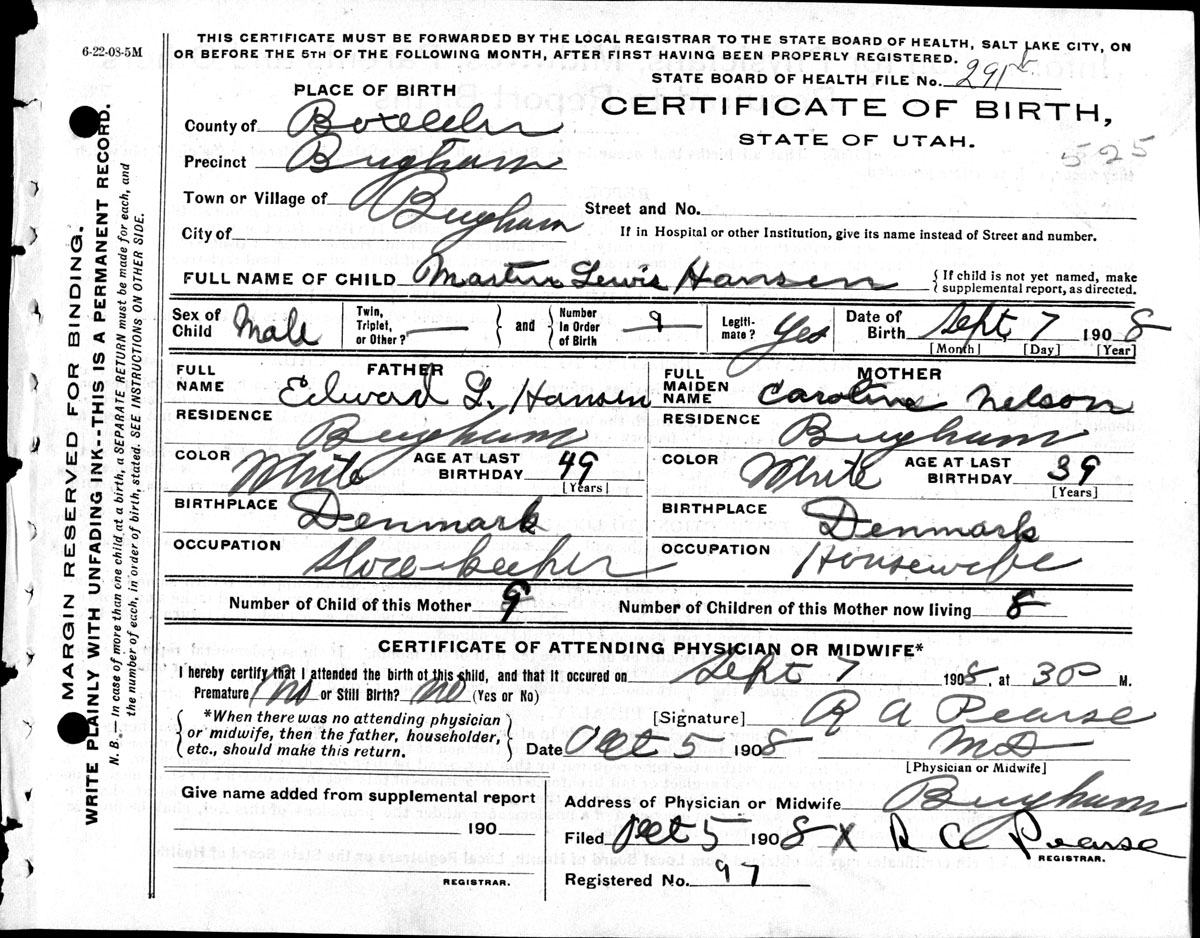 6-22-08-5M
THIS CERTIFICATE MUST BE FORWARDED BY THE LOCAL REGISTRAR TO THE STATE BOARD OF HEALTH, SALT LAKE CITY, ON
OR BEFORE THE 5TH OF THE FOLLOWING MONTH, AFTER FIRST HAVING BEEN PROPERLY REGISTERED.
STATE BOARD OF HEALTH FILE No. 291
PLACE OF BIRTH
CERTIFICATE OF BIRTH,
STATE OF UTAH.
525
County of Boxelder
Precinct Brigham
Town or Village of
Street and No.
City of Brigham
If in Hospital or other Institution, give its name instead of Street and number.
FULL NAME OF CHILD Martin Lewis Hansen { If child is not yet named, make
supplemental report, as directed.
Sex of Child Male
Twin, Triplet, or Other? —
} and {
Number in Order of Birth 9
Legiti-mate? Yes
Date of Birth Sept 7 1908
[Month] [Day] [Year]
FATHER
FULL NAME Edward L. Hansen
RESIDENCE Brigham
COLOR White AGE AT LAST BIRTHDAY 49
[Years]
BIRTHPLACE Denmark
OCCUPATION Storekeeper
MOTHER
FULL MAIDEN NAME Caroline Nelson
RESIDENCE Brigham
COLOR White AGE AT LAST BIRTHDAY 39
[Years]
BIRTHPLACE Denmark
OCCUPATION Housewife
Number of Child of this Mother 9 Number of Children of this Mother now living 8
CERTIFICATE OF ATTENDING PHYSICIAN OR MIDWIFE*
I hereby certify that I attended the birth of this child, and that it occured on Sept 7 1908 at 30 M.
Premature? No or Still Birth? No (Yes or No)
{ *When there was no attending physician
or midwife, then the father, householder,
etc., should make this return. }
[Signature] R A Pearse
Date Oct 5 1908 MD
[Physician or Midwife]
Give name added from supplemental report
190
REGISTRAR.
Address of Physician or Midwife Brigham
Filed Oct 5 1908 X R A Pearse
REGISTRAR.
Registered No. 97
MARGIN RESERVED FOR BINDING.
WRITE PLAINLY WITH UNFADING INK--THIS IS A PERMANENT RECORD.
N. B.—In case of more than one child at a birth, a SEPARATE RETURN must be made for each, and
the number of each, in order of birth, stated. SEE INSTRUCTIONS ON OTHER SIDE.